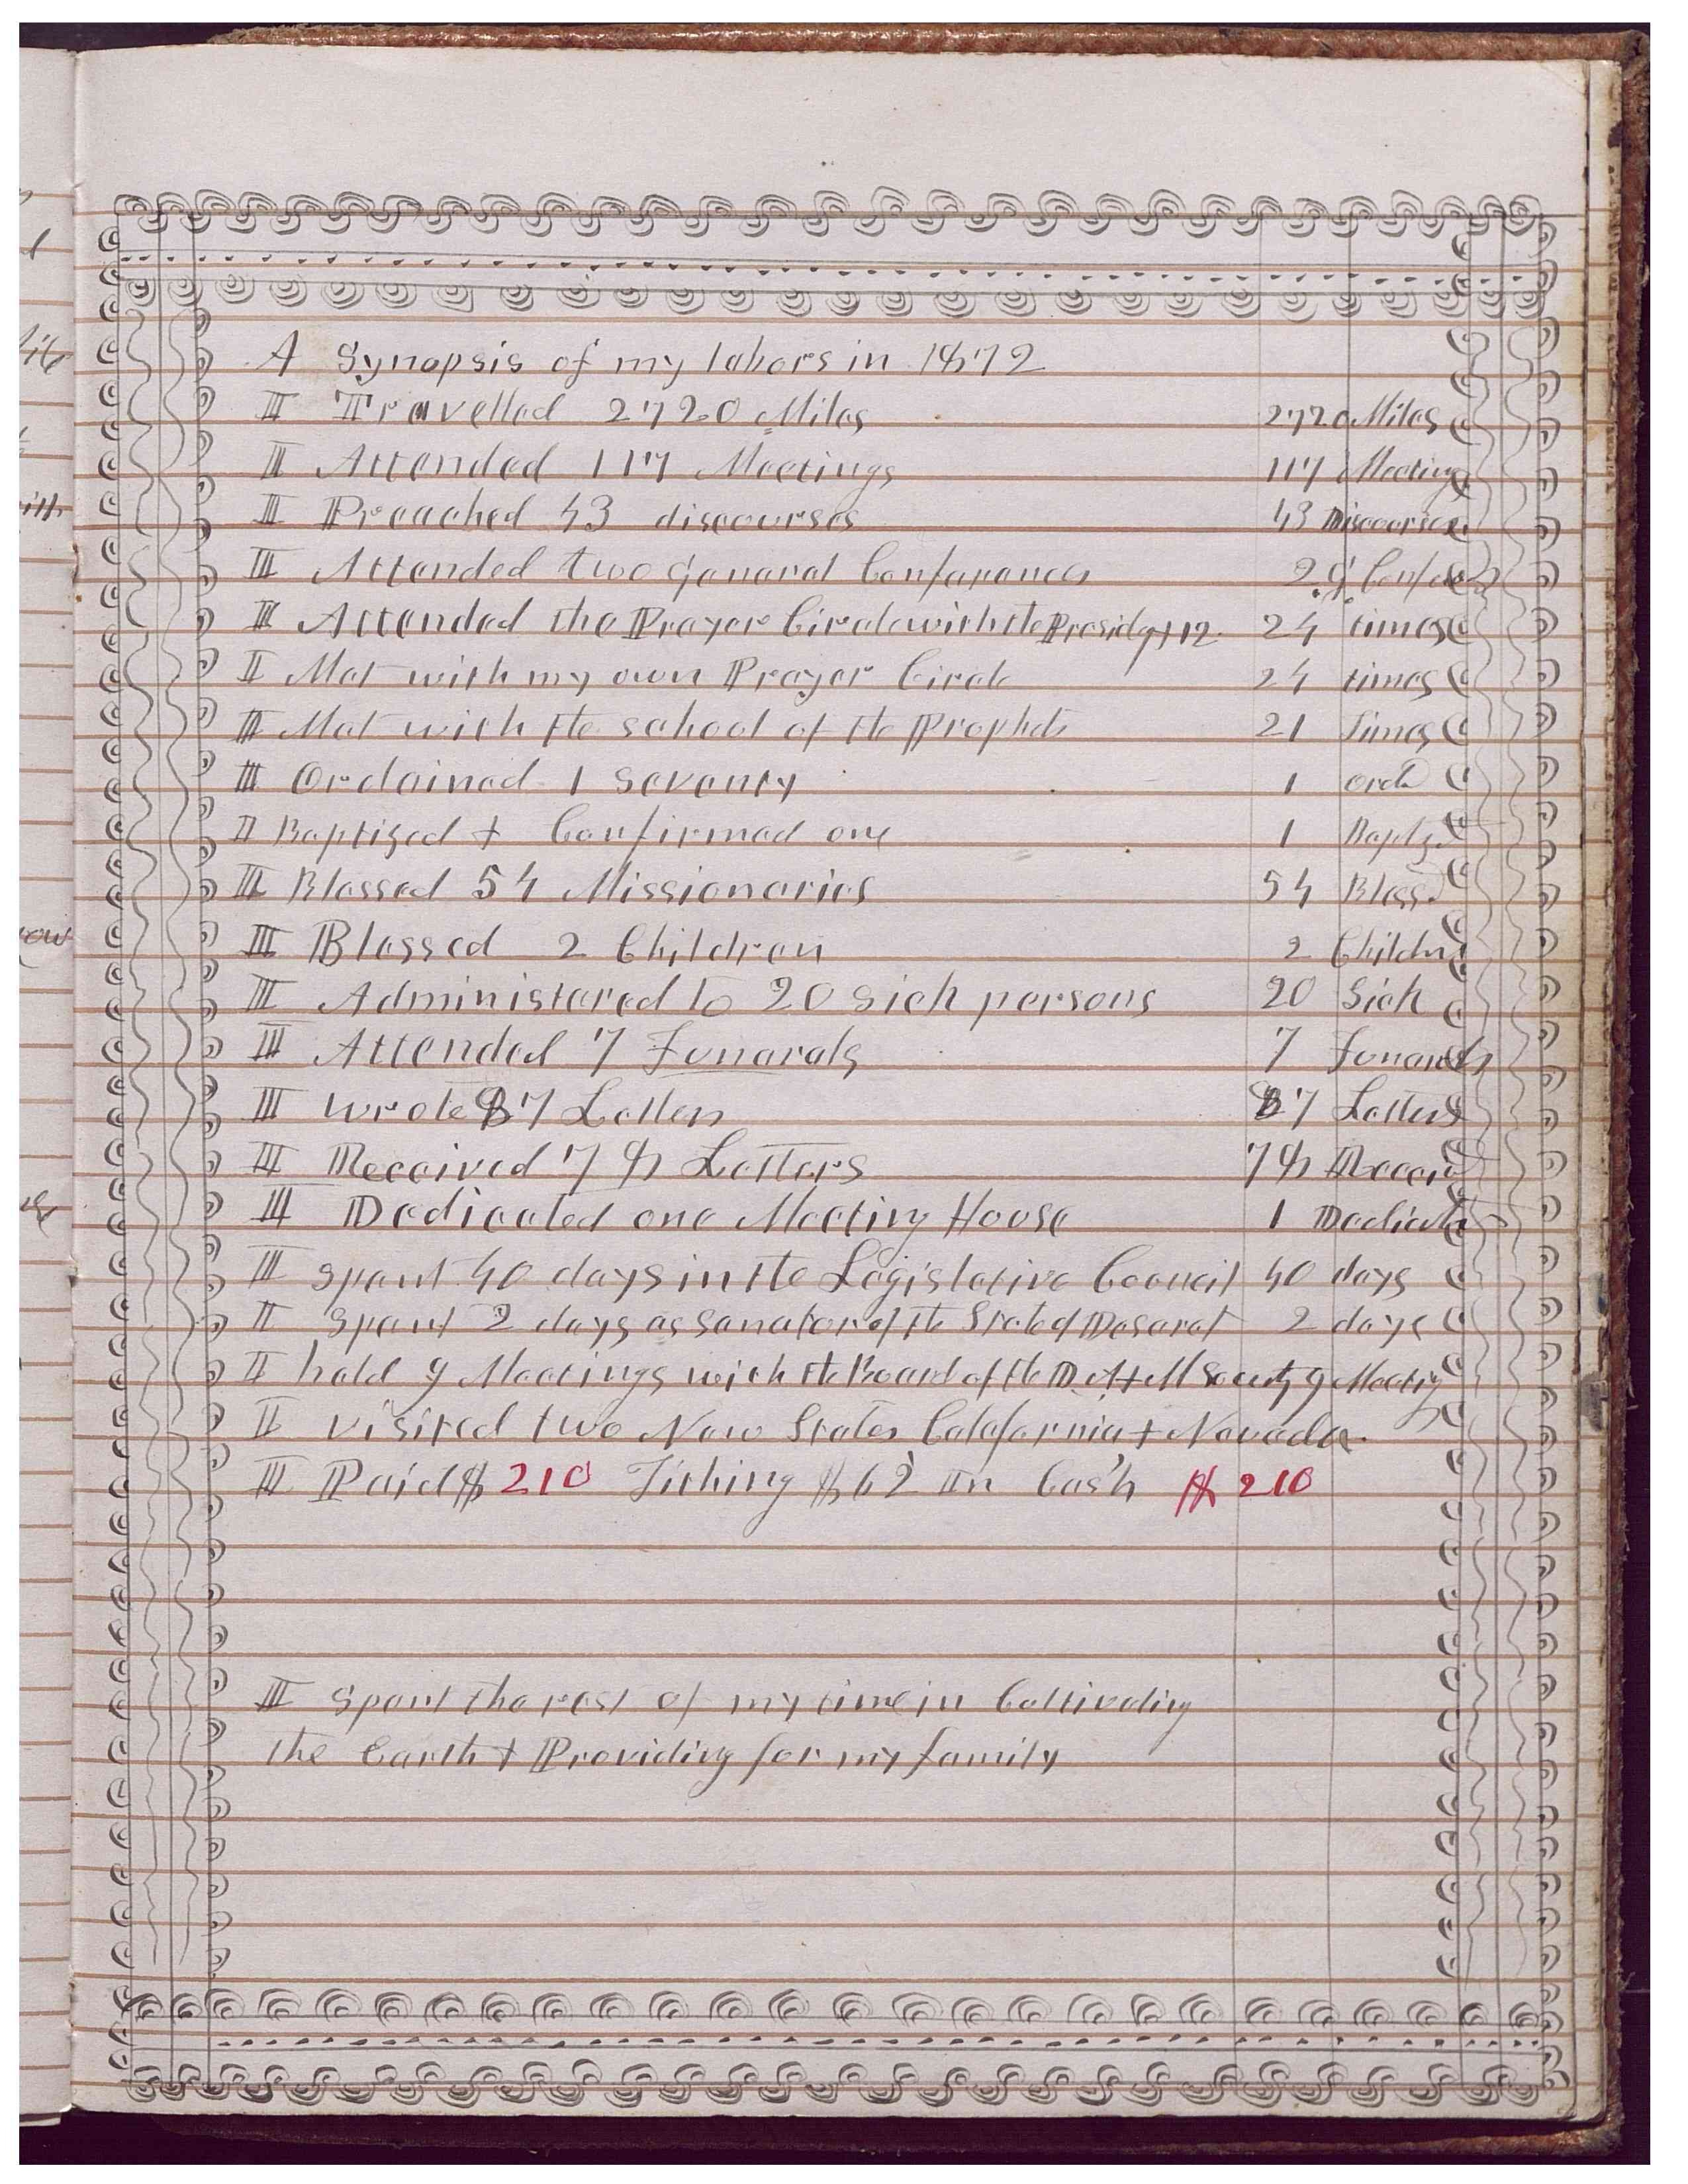 A Synopsis of my labors in 1872
I Travelled 2720 Miles 2720 Miles
I Attended 117 Meetings 117 Meeting
I Preached 43 discourses 43 Discourses
I Attended two general Conferences 2 g Confer
I Attended the Prayer Circle with the Presidy + 12 24 times
I Met with my own Prayer Circle 24 times
I Met with the school of the Prophets 21 Times
I Ordained 1 Seventy 1 Ord
I Baptized + Confirmed one 1 Baptz
I Blessed 54 Missionaries 54 Bless
I Blessed 2 Children 2 Childn
I Administered to 20 sick persons 20 Sick
I Attended 7 Funerals 7 Funerals
I wrote 87 Letters 87 Letters
I Received 78 Letters 78 Receiv
I Dedicated one Meeting House 1 Dedicat
I spent 40 days in the Legislative Council 40 days
I spent 2 days as Senator of the State of Deseret 2 days
I held 9 Meetings with the Board of the D A + M Society 9 Meetig
I visited two New States California + Nevada
I Paid $210 Tithing $62 In Cash $210
I spent the rest of my time in Cultivating
the Earth + Providing for my family